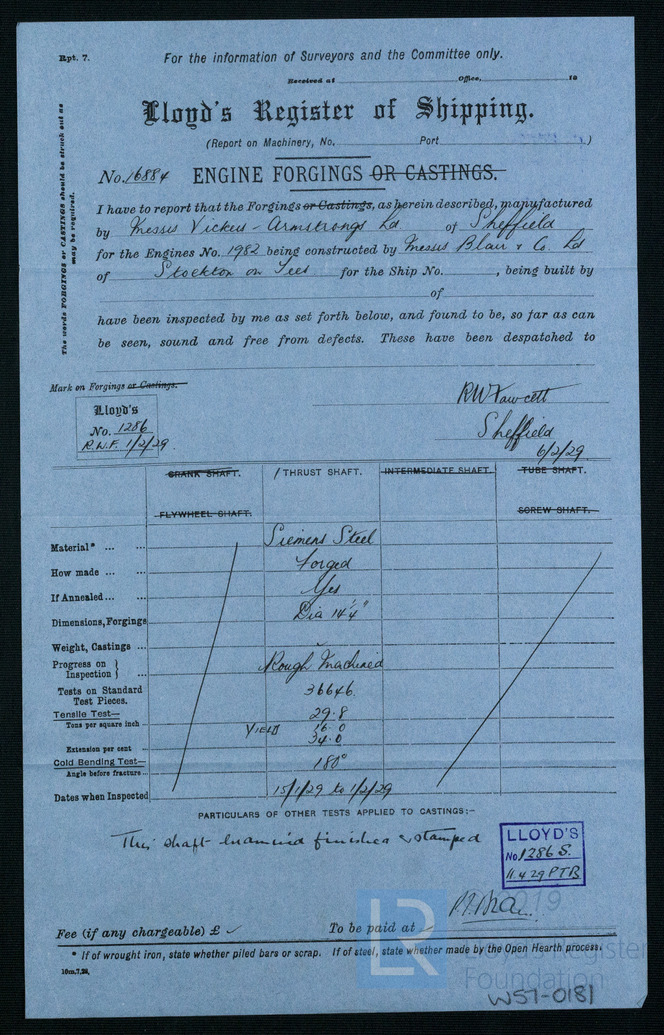 Rpt. 7.
For the information of Surveyors and the Committee only.
Received at Office, 19
Lloyd's Register of Shipping.
(Report on Machinery, No. Port )
No. 16884 ENGINE FORGINGS OR CASTINGS.
The words FORGINGS or CASTINGS should be struck out as may be required.
I have to report that the Forgings or Castings, as herein described, manufactured
by Messrs Vickers-Armstrongs Ld of Sheffield
for the Engines No. 1982 being constructed by Messrs Blair & Co. Ld
of Stockton on Tees for the Ship No. , being built by
of
have been inspected by me as set forth below, and found to be, so far as can
be seen, sound and free from defects. These have been despatched to
Mark on Forgings or Castings.
Lloyd's
No. 1286
R.W.F. 1/2/29.
RW Fawcett
Sheffield
6/2/29
CRANK SHAFT. 1 THRUST SHAFT. INTERMEDIATE SHAFT. TUBE SHAFT.
FLYWHEEL SHAFT. SCREW SHAFT.
Material* ... ... Siemens Steel
How made ... ... Forged
If Annealed ... ... Yes
Dimensions, Forgings Dia 14¼"
Weight, Castings ...
Progress on Inspection } ... Rough Machined
Tests on Standard Test Pieces. 36646.
Tensile Test— 29.8
Tons per square inch ... YIELD 16.0
Extension per cent 34.0
Cold Bending Test— 180°
Angle before fracture...
Dates when Inspected 15/1/29 to 1/2/29
PARTICULARS OF OTHER TESTS APPLIED TO CASTINGS:-
This shaft examined finished & stamped
LLOYD'S
No 1286 S.
11.4.29 PTB
Fee (if any chargeable) £ To be paid at
* If of wrought iron, state whether piled bars or scrap. If of steel, state whether made by the Open Hearth process.
10m,7,28.
LR
2019
Lloyd's Register
Foundation
W57-0181